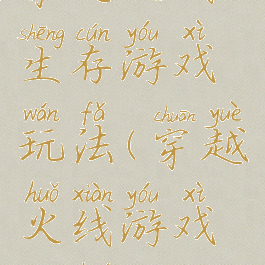 shēng cún yóu xì
生存游戏
wán fǎ ( chuān yuè
玩法(穿越
huǒ xiàn yóu xì
火线游戏